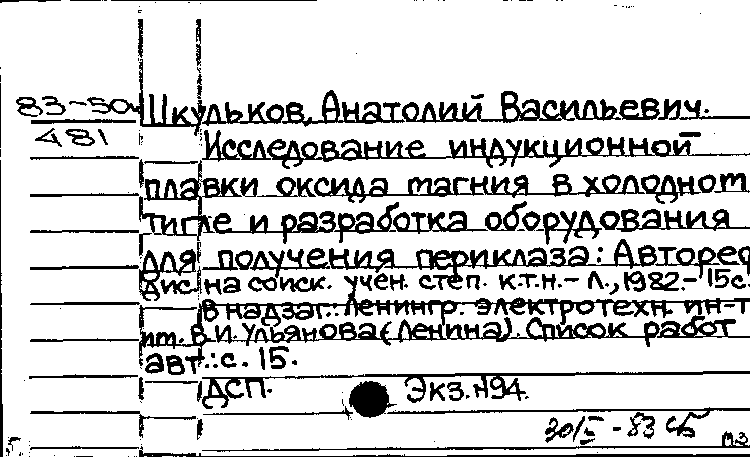 83-50 Шкульков, Анатолий Васильевич.
481 Исследование индукционной
плавки оксида магния в холодном
тигле и разработка оборудования
для получения периклаза: Авторед
дис. на соиск. учен. степ. к.т.н. - Л., 1982. - 15с.
В надзаг.: Ленингр. электротехн. ин-т
им. В.И. Ульянова (Ленина). Список работ
авт.: с. 15.
ДСП. Экз. №94.
30/V - 83